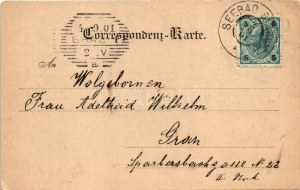 Correspondenz-Karte.
SEEBAD
An
Wolgebornen
Frau Adelheid Wilhelm
Graz
Sparbersbachgasse N. 22
II. Stock